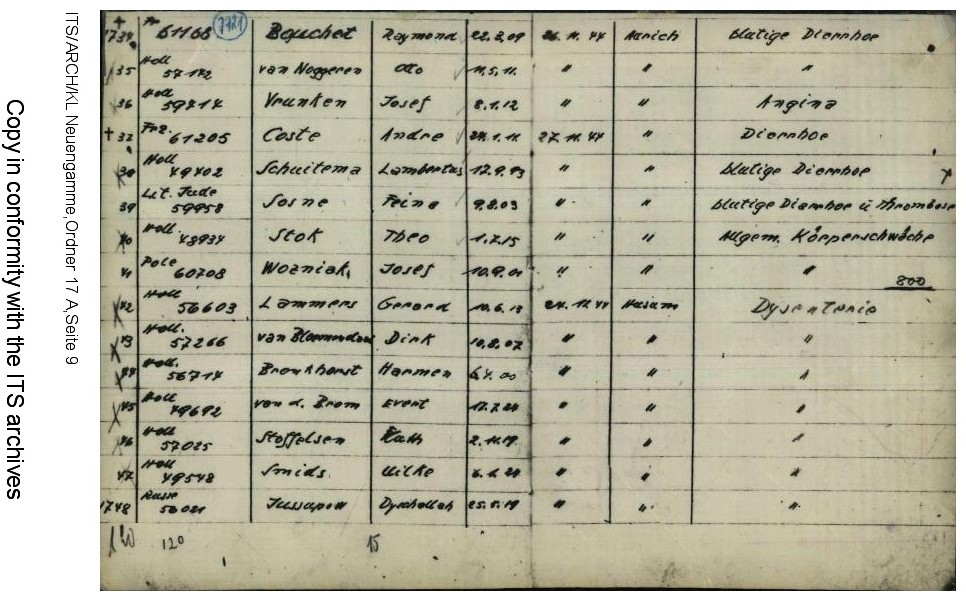 Copy in conformity with the ITS archives
ITS/ARCH/KL Neuengamme, Ordner 17 A, Seite 9
+ 1734 Fr 61168 7721 Bouchet Raymond 22.2.09 26.11.44 Aurich blutige Diarrhoe
35 Holl 57142 van Noggeren Otto 11.5.11. " " "
36 Holl 59414 Vrunken Josef 8.1.12 " " Angina
+ 37 Frz. 61205 Coste Andre 27.11.44 " Diarrhoe
38 Holl 49402 Schuitema Lambertus 12.9.93 " " blutige Diarrhoe
39 Lit. Jude 59958 Sosne Feine 9.8.03 " " blutige Diarrhoe u Thrombose
40 Holl. 43934 Stok Theo 1.7.15 " " Allgem. Körperschwäche
41 Pole 60708 Wozniak, Josef 10.9.01 " " "
800
42 Holl 56603 Lammers Gerard 10.6.13 24.12.44 Husum Dysenterie
43 Holl. 57266 van Bloemendaal Dirk 10.8.07 " " "
44 Holl. 56714 Bronkhorst Harmen 6.4.00 " " "
45 Holl 49692 van d. Brom Evert 12.7.24 " " "
46 Holl 57025 Stoffelsen 2.11.19 " " "
47 Holl 49548 Smids Uilke 6.1.24 " " "
1748 Russe Jussupow 25.5.19 " " "
120 15